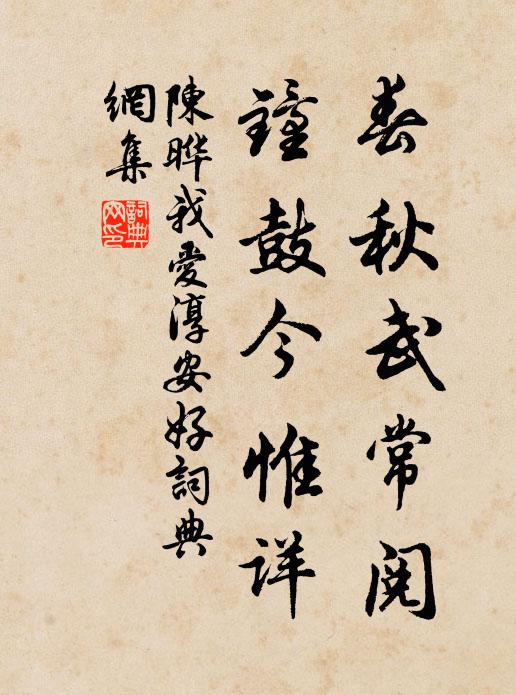 春秋武常阅
鐘鼓今惟详
陳晔我愛淳安好詞典
網集
詞典
网印